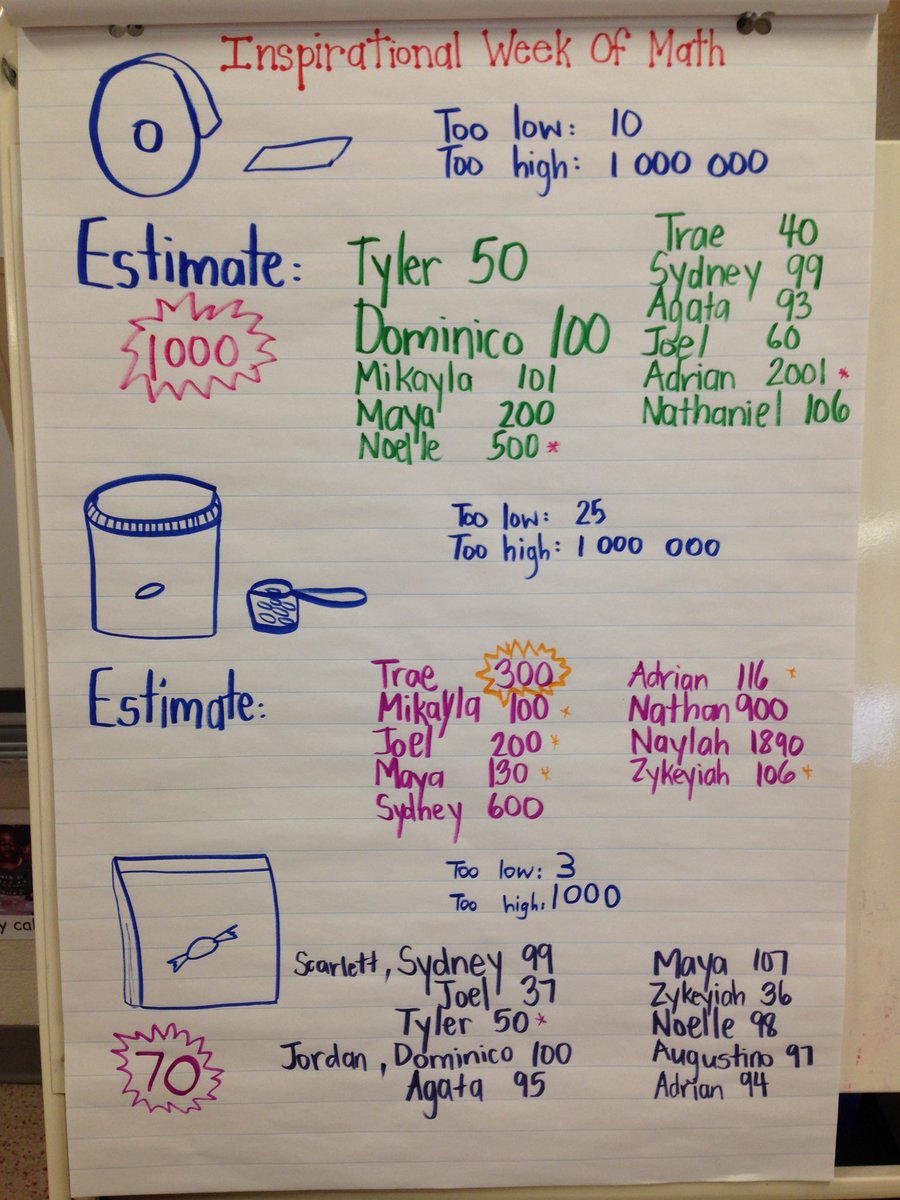 Inspirational Week Of Math
Too low: 10
Too high: 1 000 000
Estimate:
1000
Tyler 50
Dominico 100
Mikayla 101
Maya 200
Noelle 500 *
Trae 40
Sydney 99
Agata 93
Joel 60
Adrian 2001 *
Nathaniel 106
Too low: 25
Too high: 1 000 000
Estimate:
Trae 300
Mikayla 100 *
Joel 200 *
Maya 130 *
Sydney 600
Adrian 116 *
Nathan 900
Naylah 1890
Zykeyiah 106 *
Too low: 3
Too high: 1000
70
Scarlett, Sydney 99
Joel 37
Tyler 50 *
Jordan, Dominico 100
Agata 95
Maya 107
Zykeyiah 36
Noelle 98
Augustino 97
Adrian 94